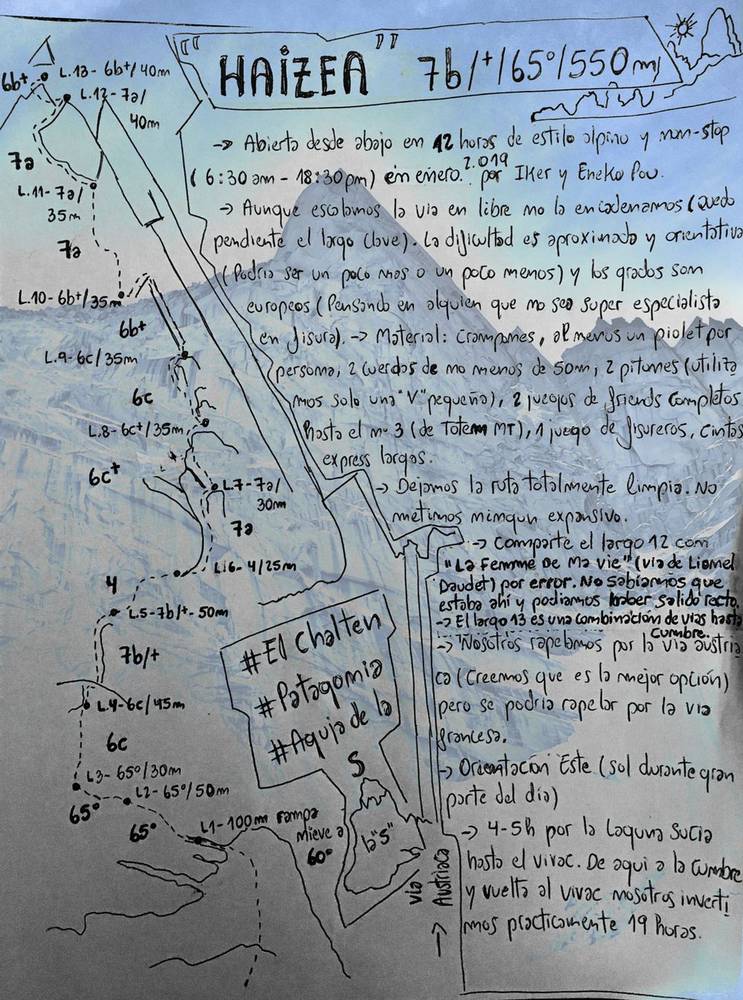 "HAIZEA" 7b/+/65º/550m/
-> Abierta desde abajo en 12 horas de estilo alpino y non-stop
(6:30 am - 18:30pm) en enero 2.019 por Iker y Eneko Pou.
-> Aunque escalamos la via en libre no la encadenamos (Quedo
pendiente el largo clave). La dificultad es aproximada y orientativa
(Podria ser un poco mas o un poco menos) y los grados son
europeos (Pensando en alguien que no sea super especialista
en fisura). -> Material: Crampones, al menos un piolet por
persona, 2 cuerdas de no menos de 50m, 2 pitones (utiliza
mos solo una "V" pequeña), 2 juegos de friends completos
hasta el nº 3 (de Totem MT), 1 juego de fisureros, cintas
express largas.
-> Dejamos la ruta totalmente limpia. No
metimos ningun expansivo.
-> Comparte el largo 12 con
"La Femme De Ma Vie" (via de Lionel
Daudet) por error. No sabiamos que
estaba ahi y podiamos haber salido recto.
-> El largo 13 es una combinación de vias hasta
cumbre.
-> Nosotros rapelamos por la via austria
ca (Creemos que es la mejor opción)
pero se podria rapelar por la via
francesa.
-> Orientacion Este (sol durante gran
parte del dia)
-> 4-5h por la Laguna Sucia
hasta el vivac. De aqui a la cumbre
y vuelta al vivac nosotros inverti
mos practicamente 19 horas.
6b+
L.13- 6b+/40m
L.12-7a/
40m
7a
L.11-7a/
35m
7a
L.10-6b+/35m
6b+
L.9-6c/35m
6c
L.8-6c+/35m
6c+
L.7-7a/
30m
7a
L.6-4/25m
4
L.5-7b/+-50m
7b/+
L.4-6c/45m
6c
L3-65º/30m
65º
L2-65º/50m
65º
L1-100m rampa
nieve a
60º
#El Chalten
#Patagonia
#Aguja de la
S
la "S"
via
Austriaca